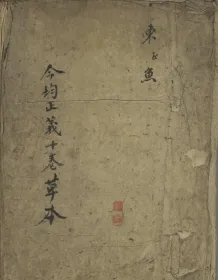 東
魚
今均正義十卷草本